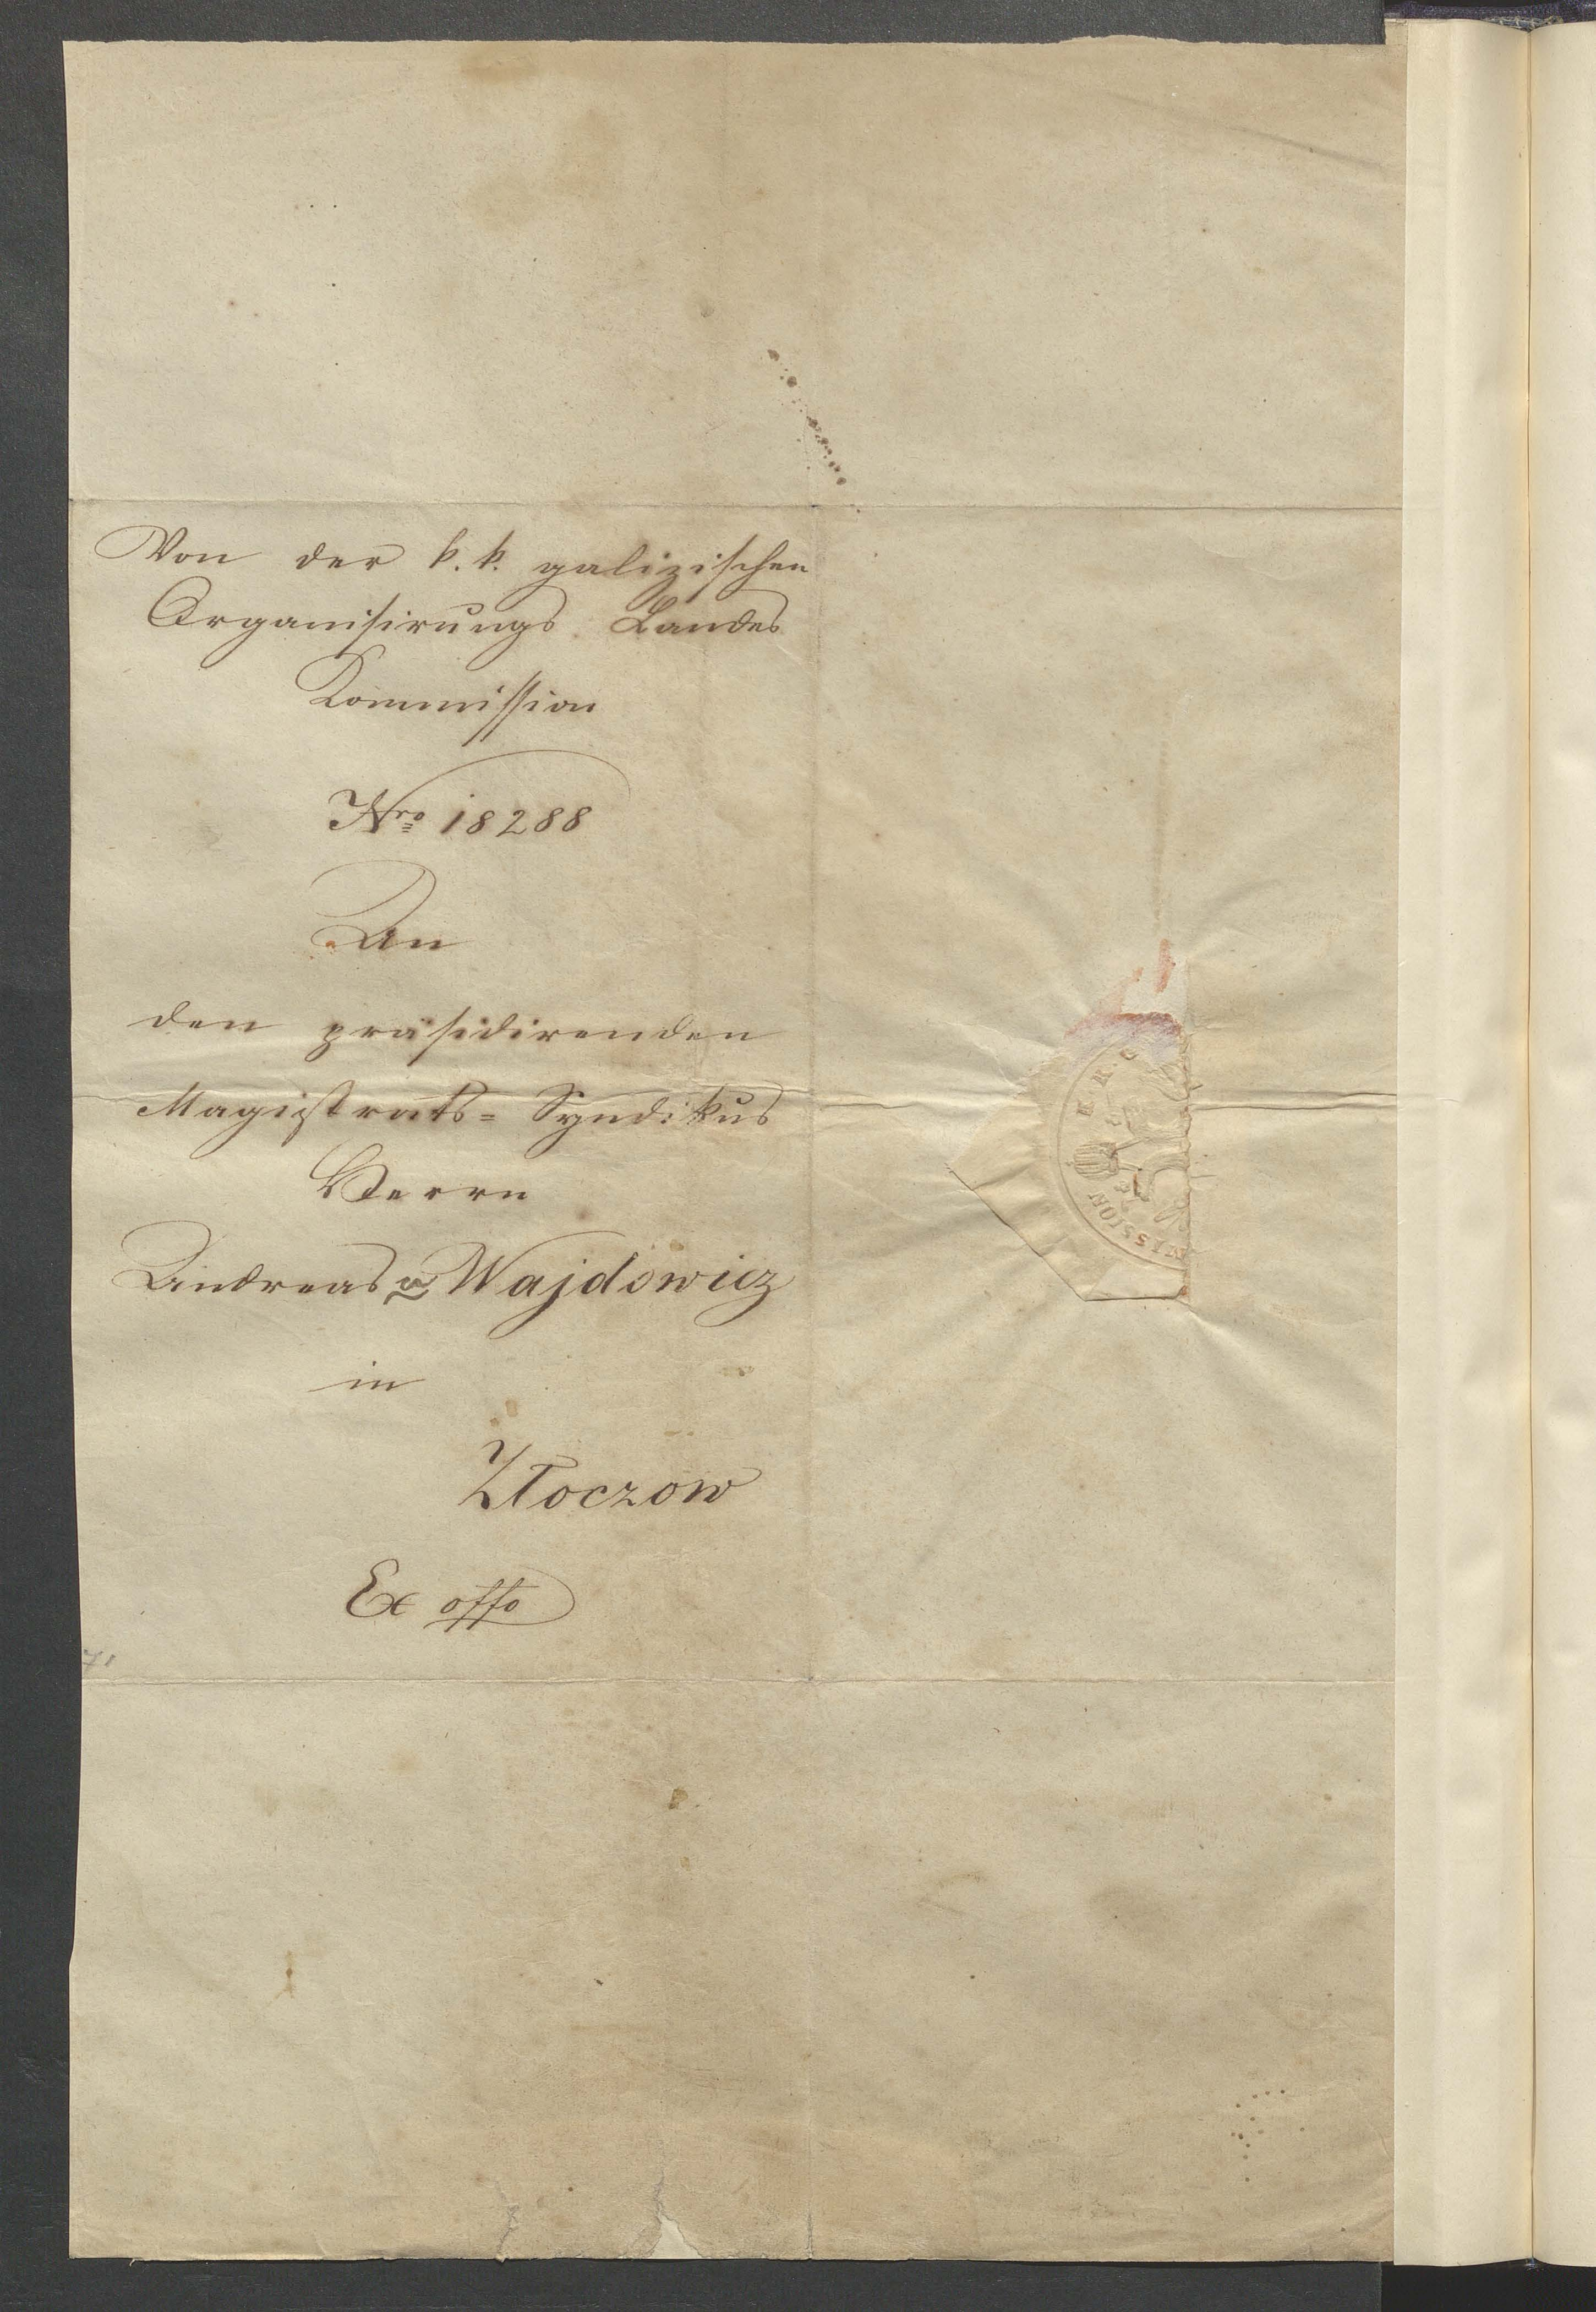 Von der k. k. galizischen
Organisirungs Landes
Kommission
Nro 18288
An
den präsidirenden
Magistrats= Syndikus
Herrn
Andreas v Wajdowicz
in
Złoczow
Ex offo
71
K. K. G
MISSION